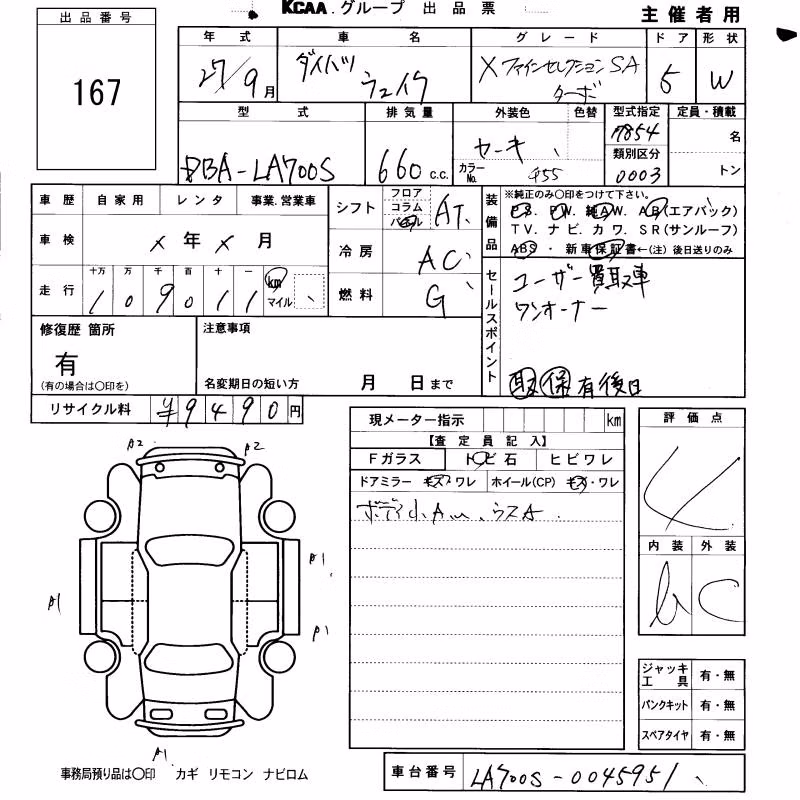 KCAA.グループ 出品票
主催者用
出品番号
167
年式 車名 グレード ドア 形状
27/9月 ダイハツ ウェイク XファインセレクションSA ターボ 5 W
型式 排気量 外装色 色替 型式指定 定員・積載
DBA-LA700S 660 c.c. カラーNo. 17854 名
類別区分
0003 トン
車歴 自家用 レンタ 事業.営業車
車検 X年X月
走行 十万 万 千 百 十 一 km マイル
109011
シフト フロア コラム パネル AT
冷房 AC
燃料 G
装備品 ※純正のみ〇印をつけて下さい。
P.S. P.W. 純A.W. A.B(エアバック)
TV. ナビ. カワ. SR(サンルーフ)
ABS ・ 新車保証書←(注)後日送りのみ
セールスポイント
ユーザー買取車
ワンオーナー
取 保 有後日
修復歴 箇所
有
(有の場合は〇印を)
注意事項
名変期日の短い方 月 日まで
リサイクル料 ¥9490円
現メーター指示 km
【査定員記入】
Fガラス トビ石 ヒビワレ
ドアミラー キズ・ワレ ホイール(CP) キズ・ワレ
ボディ小A ウスA
評価点
4
内装 外装
b C
A2 A2
A1
A1
A1
A1
ジャッキ工具 有・無
パンクキット 有・無
スペアタイヤ 有・無
事務局預り品は〇印 カギ リモコン ナビロム
車台番号 LA700S-0045951